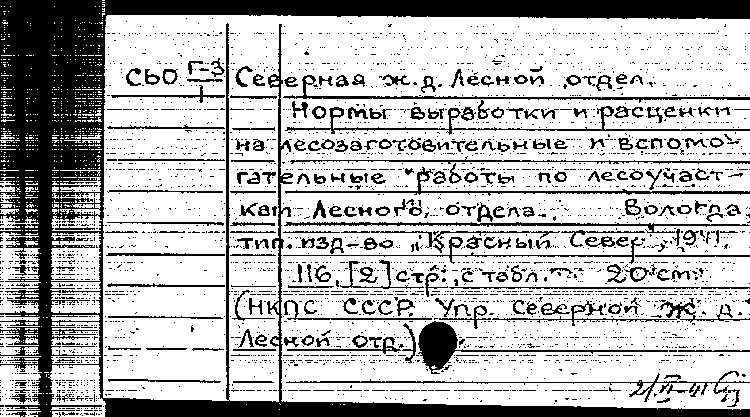 СЬО Г-3/1 Северная ж.д. Лесной отдел.
Нормы выработки и расценки
на лесозаготовительные и вспомо-
гательные работы по лесоучаст-
кам Лесного отдела. Вологда
тип. изд-во „Красный Север", 1941.
116, [2] стр., с табл. 20 см.
(НКПС СССР. Упр. Северной ж. д.
Лесной отд.)